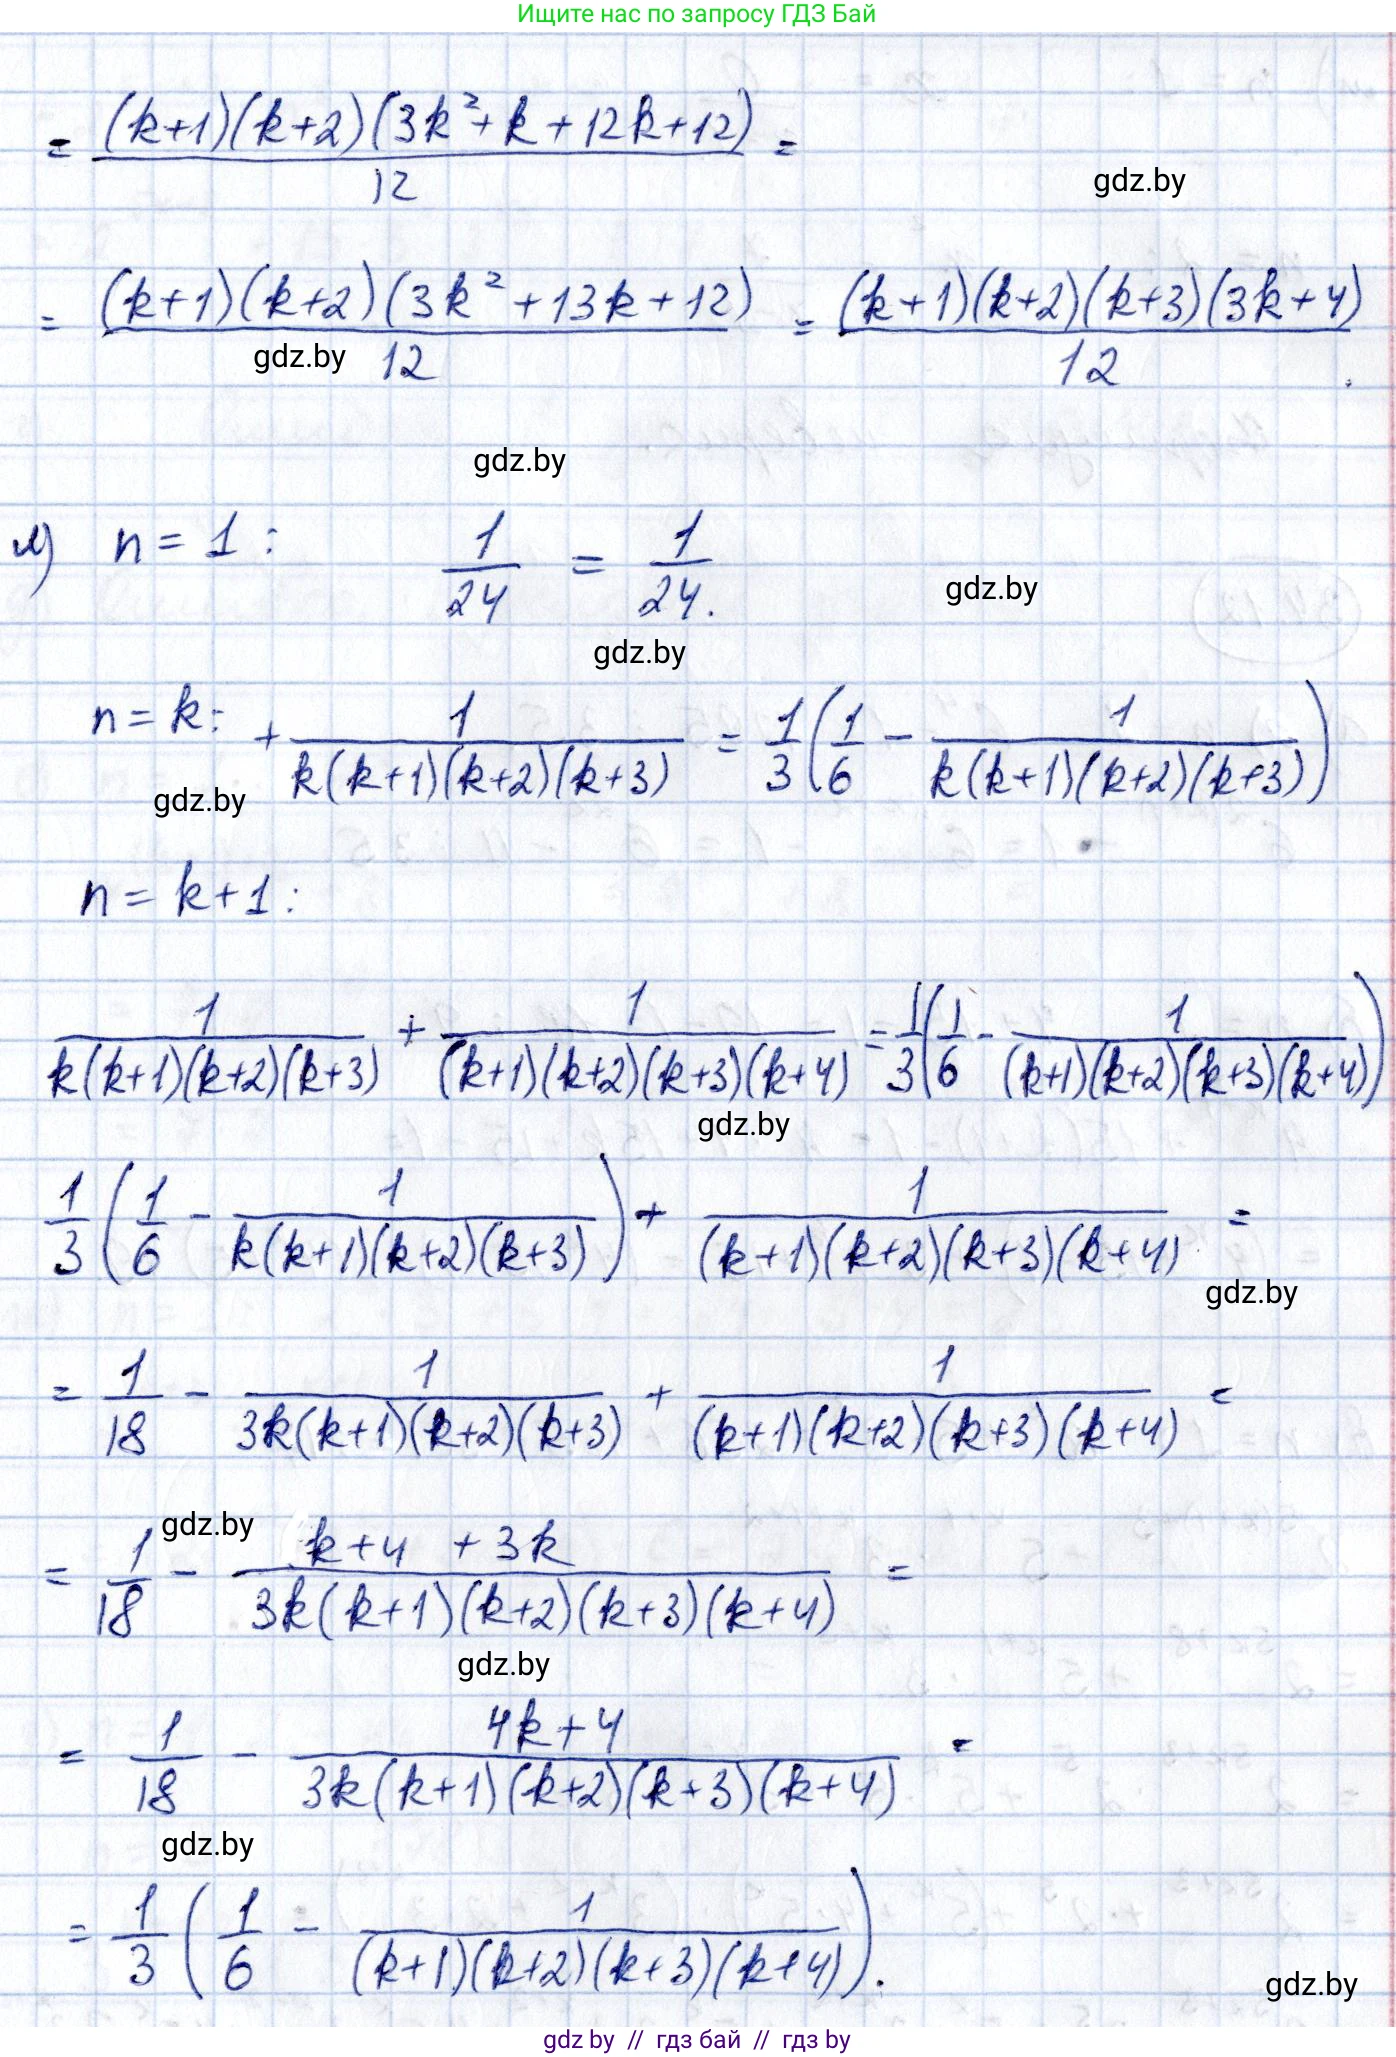 Ищите нас по запросу ГДЗ Бай
= (k+1)(k+2)(3k²+k+12k+12)/12 =
gdz.by
= (k+1)(k+2)(3k²+13k+12)/12 = (k+1)(k+2)(k+3)(3k+4)/12.
gdz.by
gdz.by
м) n = 1: 1/24 = 1/24.
gdz.by
gdz.by
n = k: + 1/(k(k+1)(k+2)(k+3)) = 1/3 (1/6 - 1/(k(k+1)(k+2)(k+3)))
gdz.by
n = k+1:
1/(k(k+1)(k+2)(k+3)) + 1/((k+1)(k+2)(k+3)(k+4)) = 1/3 (1/6 - 1/((k+1)(k+2)(k+3)(k+4)))
gdz.by
1/3 (1/6 - 1/(k(k+1)(k+2)(k+3))) + 1/((k+1)(k+2)(k+3)(k+4)) =
gdz.by
= 1/18 - 1/(3k(k+1)(k+2)(k+3)) + 1/((k+1)(k+2)(k+3)(k+4)) =
gdz.by
= 1/18 - (k+4 + 3k)/(3k(k+1)(k+2)(k+3)(k+4)) =
gdz.by
= 1/18 - (4k+4)/(3k(k+1)(k+2)(k+3)(k+4)) =
gdz.by
= 1/3 (1/6 - 1/((k+1)(k+2)(k+3)(k+4))).
gdz.by
gdz by // гдз бай // гдз by